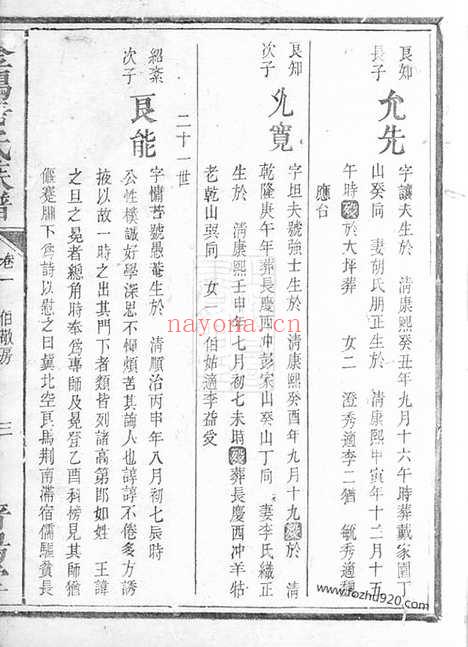 良知
長子
允先
字讓夫生於 淸康熙癸丑年九月十六午時葬戴家園丁
山癸同 妻胡氏朋正生於 淸康熙甲寅年十二月十五
午時歿於大坪葬 女二 澄秀適李二酋 毓秀適穆
應台
良知
次子
允寬
字坦夫號強士生於 淸康熙癸酉年九月十九歿於 淸
乾隆庚午年葬長慶西冲彭家山癸山丁同 妻李氏織正
生於 淸康熙壬申年七月初七未時歿葬長慶西冲羊牯
老乾山巽同 女一 伯姑適李益受
二十一世
紹素
次子
良能
字慵菩號愚菴生於 淸順治丙申年八月初七辰時
公性樸誠好學深思不憚煩苦其論人也諄諄不倦多方誘
掖以故一時之出其門下者類皆列諸高第郎如姓 王諱
之旦之晃者總角時奉爲專師及晃登乙酉科榜見其師
偃蹇牖下爲詩以慰之曰冀北空良馬荆南滯宿儒驅貧長
氏族譜
卷一 伯敬房
三
nayona.cn
www.fozhu920.com